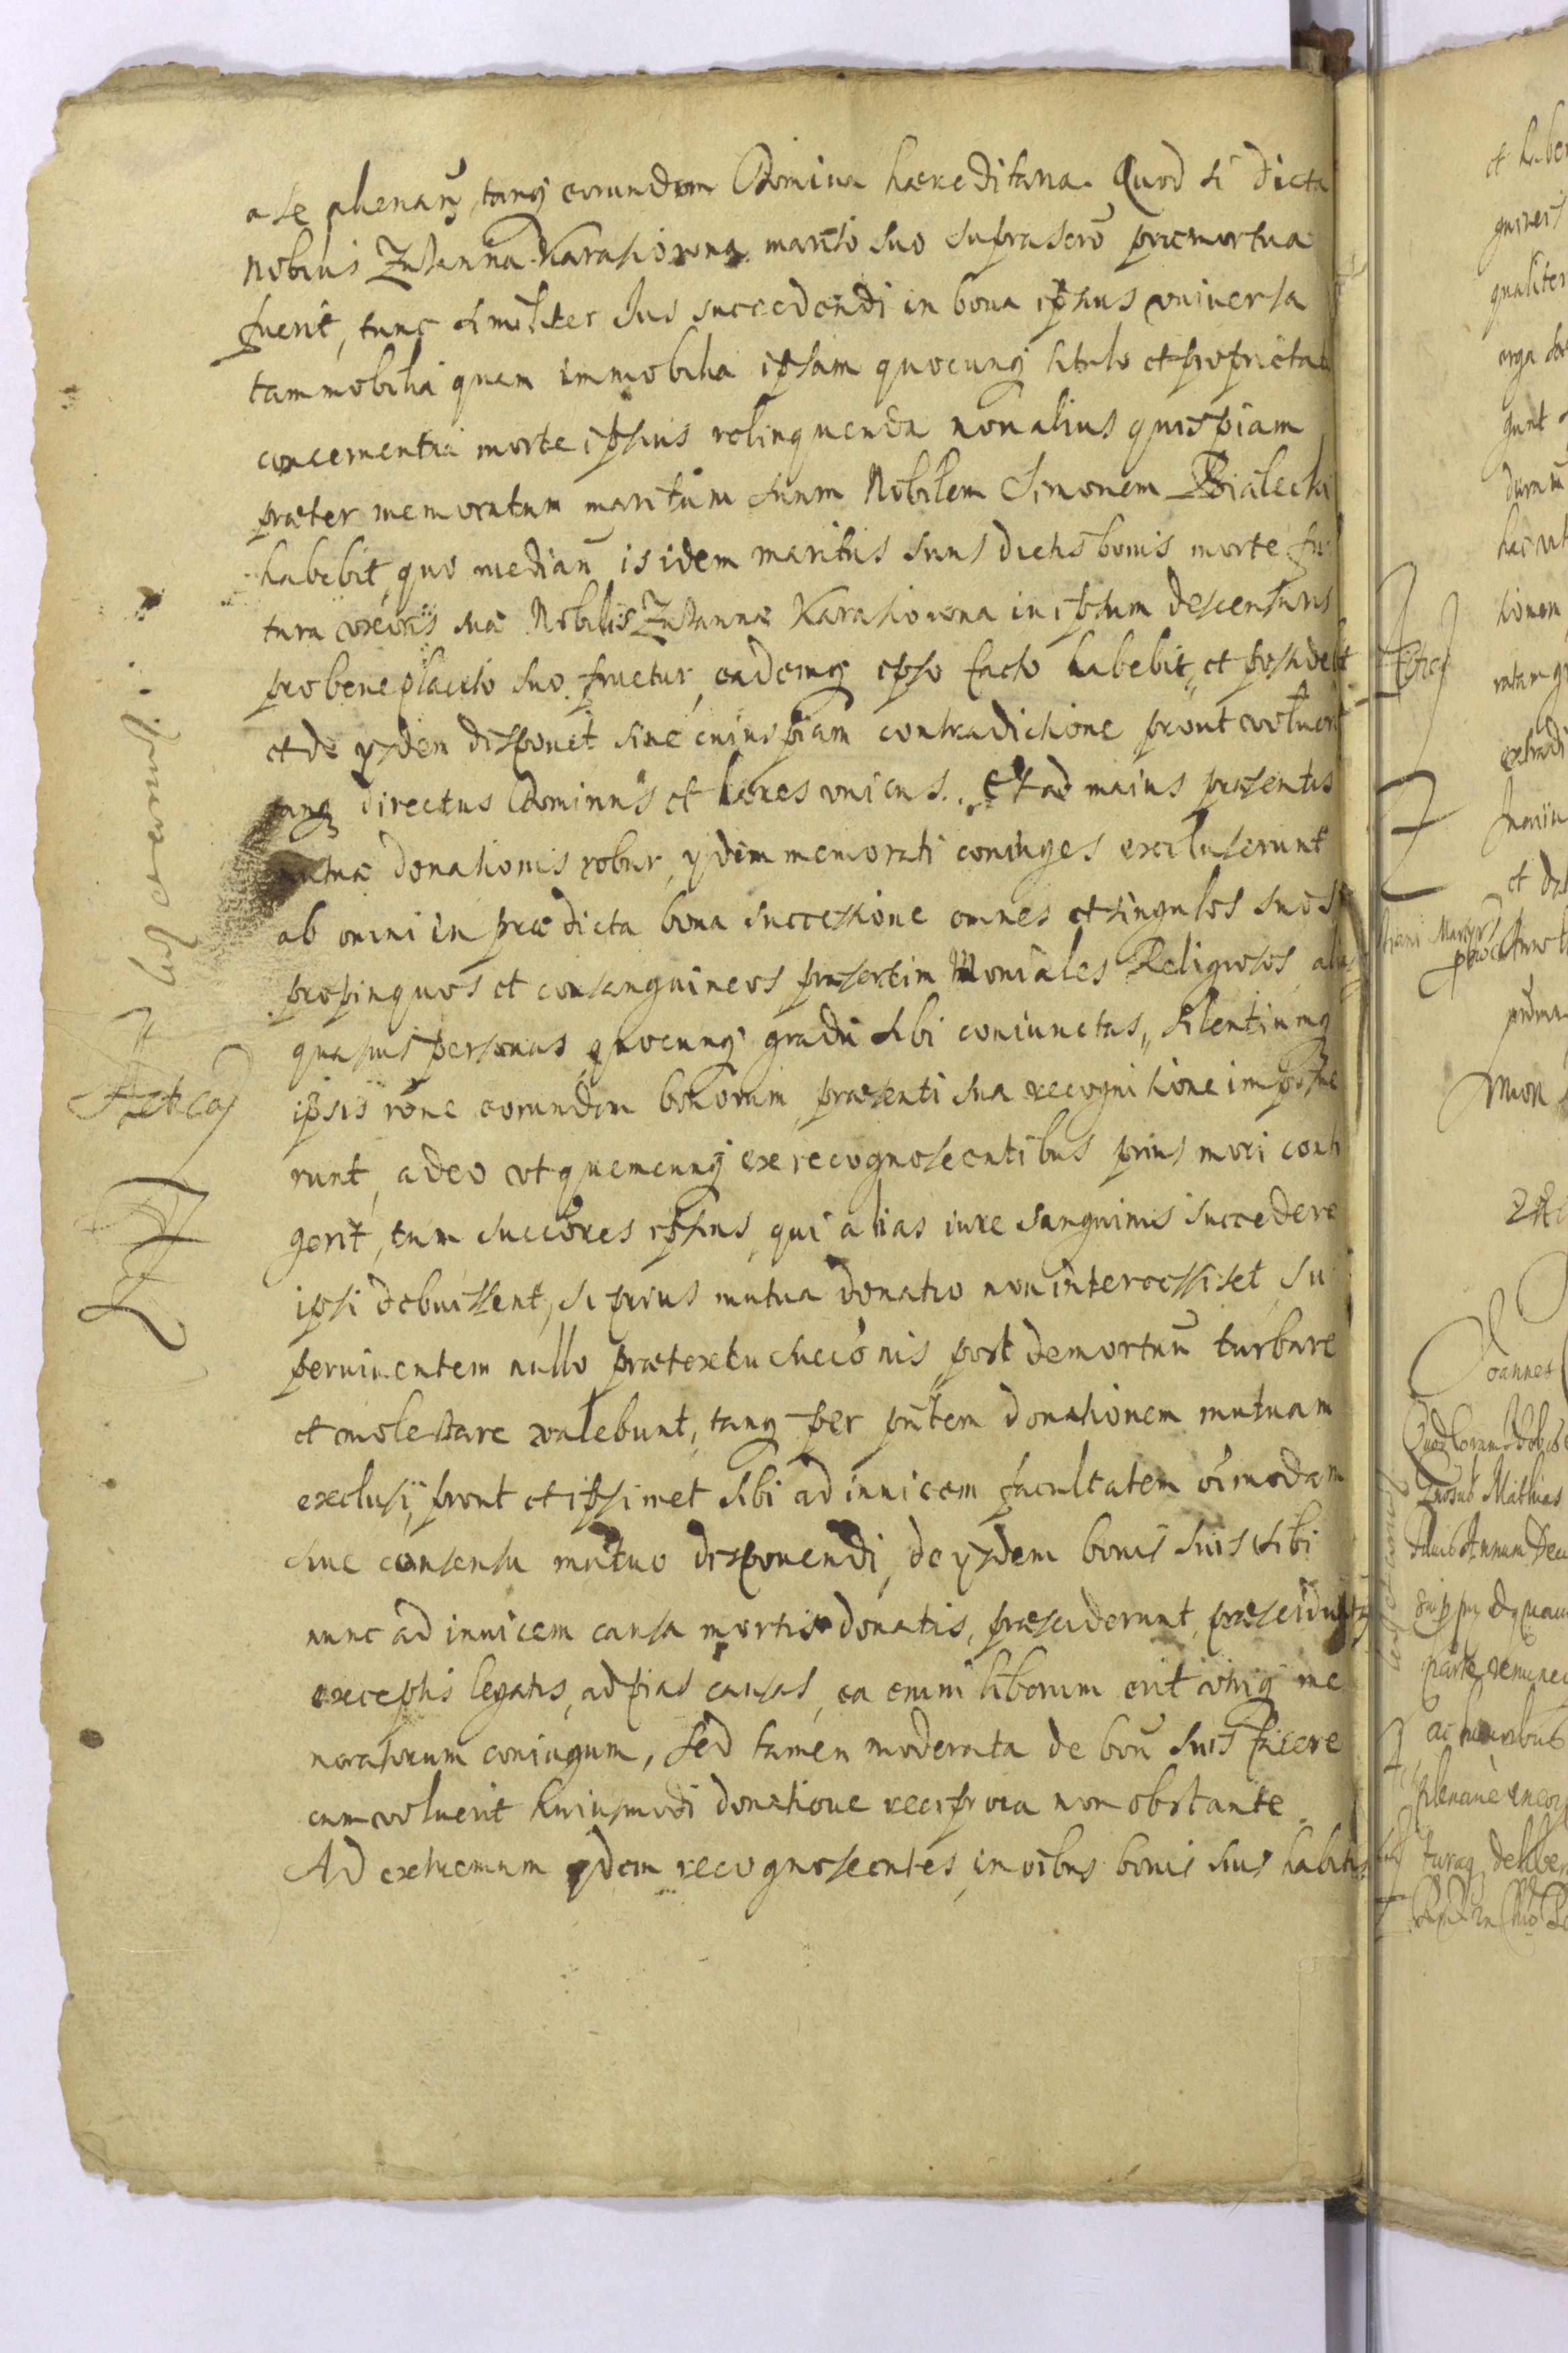 a se alienarũ, tanq̃ eorundem Domina haereditaria. Quod si dicta
Nobilis Zuzanna Karasiowna marito suo suprascrõ praemortua
fuerit, tunc similiter Ius succedendi in bona ipsius vniversa
tam mobilia quam immobilia ipsam quocunq̃ titulo et proprietate
concernentia morte ipsius relinquenda non alius quispiam
praeter memoratum maritum suum Nobilem Simonem Bialecki
habebit, quo mediañ is idem maritus suus dictis bonis morte fu
tura uxoris suae Nobilis Zuzannae Karasiowna in ipsum descensuris
pro beneplacito suo fruetur, eademq̃ ipso facto habebit, et possidebit
et de ysdem disponet sine cuiuspiam contradictione prout voluerit
tanq̃ directus Dominus et haeres vnicus. Et ad maius praesentis
mutuae donationis robur, ydem memorati coniuges excluserunt
ab omni in praedicta bona successione omnes et singulos suos
propinquos et consanguineos praesertim Moniales Religiosos, alias
quasvis personas quocunq̃ gradu sibi coniunctas, silentiumq̃
ipsis rõne eorundem bonorum praesenti sua recognitione imposue
runt, adeo vt quemcunq̃ ex recognoscentibus prius mori conti
gerit, tum succõres ipsius, qui alias iure sanguinis succedere
ipsi debuissent, si prius mutua donatio non intercessisset, su
perviventem nullo praetextu succõnis, post demortuũ turbare
et molestare valebunt, tanq̃ per pñtem donationem mutuam
exclusi, prout et ipsimet sibi ad invicem facultatem oĩmodam
sine consensu mutuo disponendi, de ysdem bonis suis sibi
nunc ad invicem causa mortis donatis, praesciderunt, praescidunt
exceptis legatis, ad pias causas, ea enim liberum erit vtriq̃ me
moratorum coniugum, sed tamen moderata de boñ suis facere
cum voluerit huiusmodi donatione reciproca non obstante.
Ad extremum ydem recognoscentes, in oĩbus bonis suis habitis